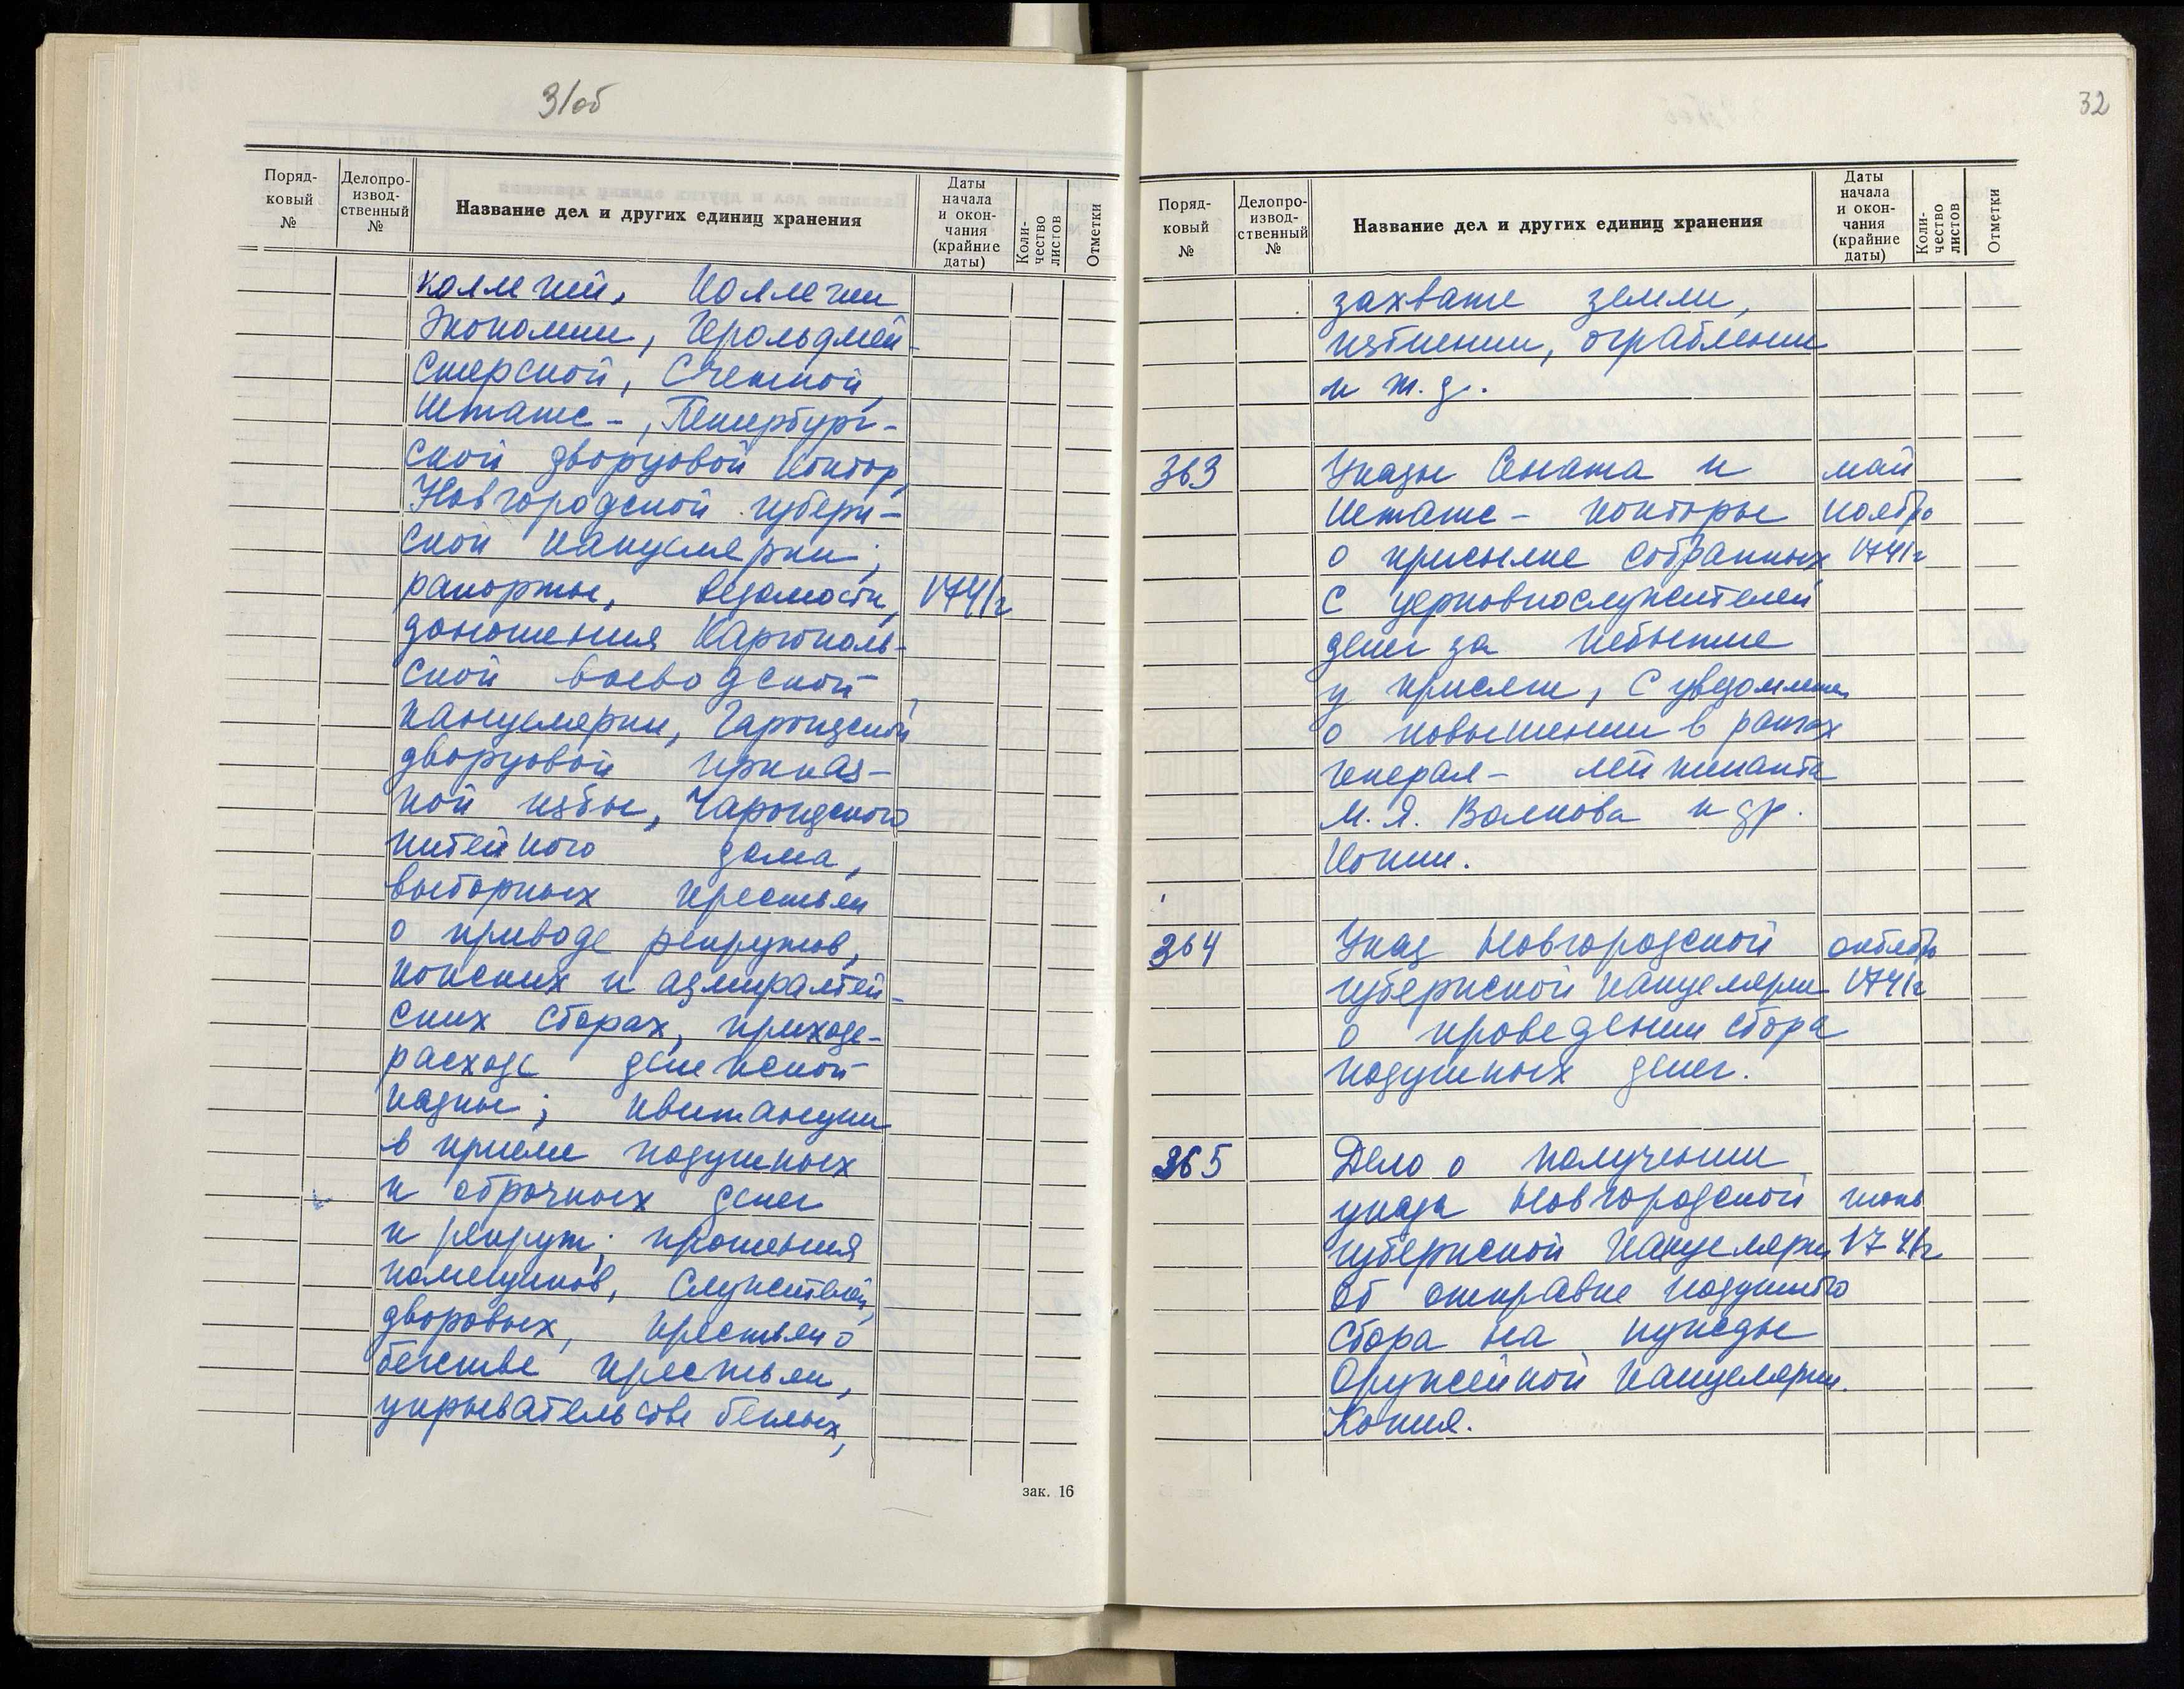 31об
Поряд-
ковый
№
Делопро-
извод-
ственный
№
Название дел и других единиц хранения
Даты
начала
и окон-
чания
(крайние
даты)
Коли-
чество
листов
Отметки
коллегий, Коллегии
Экономии, Герольдмей-
стерской, Счетной,
Штатс-, Петербург-
ской дворцовой контор,
Новгородской губерн-
ской канцелярии;
рапорты, ведомости, 1741г
доношения Каргополь-
ской воеводской
канцелярии, Чарондской
дворцовой приказ-
ной избы, Чарондского
питейного дома,
выборных крестьян
о приводе рекрутов,
конских и адмиралтей-
ских сборах, приходе-
расходе денежной
казны; квитанции
в приеме подушных
и оброчных денег
и рекрут; прошения
помещиков, служителей,
дворовых, крестьян о
бегстве крестьян,
укрывательстве беглых,
зак. 16
32
Поряд-
ковый
№
Делопро-
извод-
ственный
№
Название дел и других единиц хранения
Даты
начала
и окон-
чания
(крайние
даты)
Коли-
чество
листов
Отметки
захвате земли,
избиении, ограблении
и т.д.
363 Указы Сената и май
Штатс- конторы ноябрь
о присылке собранных 1741г
с церковнослужителей
денег за небытие
у присяги, с уведомлен
о повышении в рангах
генерал- лейтенанта
М. Я. Волкова и др.
Копии.
364 Указ Новгородской октябрь
губернской канцелярии 1741г
о проведении сбора
подушных денег.
365 Дело о получении
указа Новгородской июнь
губернской канцелярии 1741г
об отправке подушного
сбора на нужды
Оружейной канцелярии.
Копия.